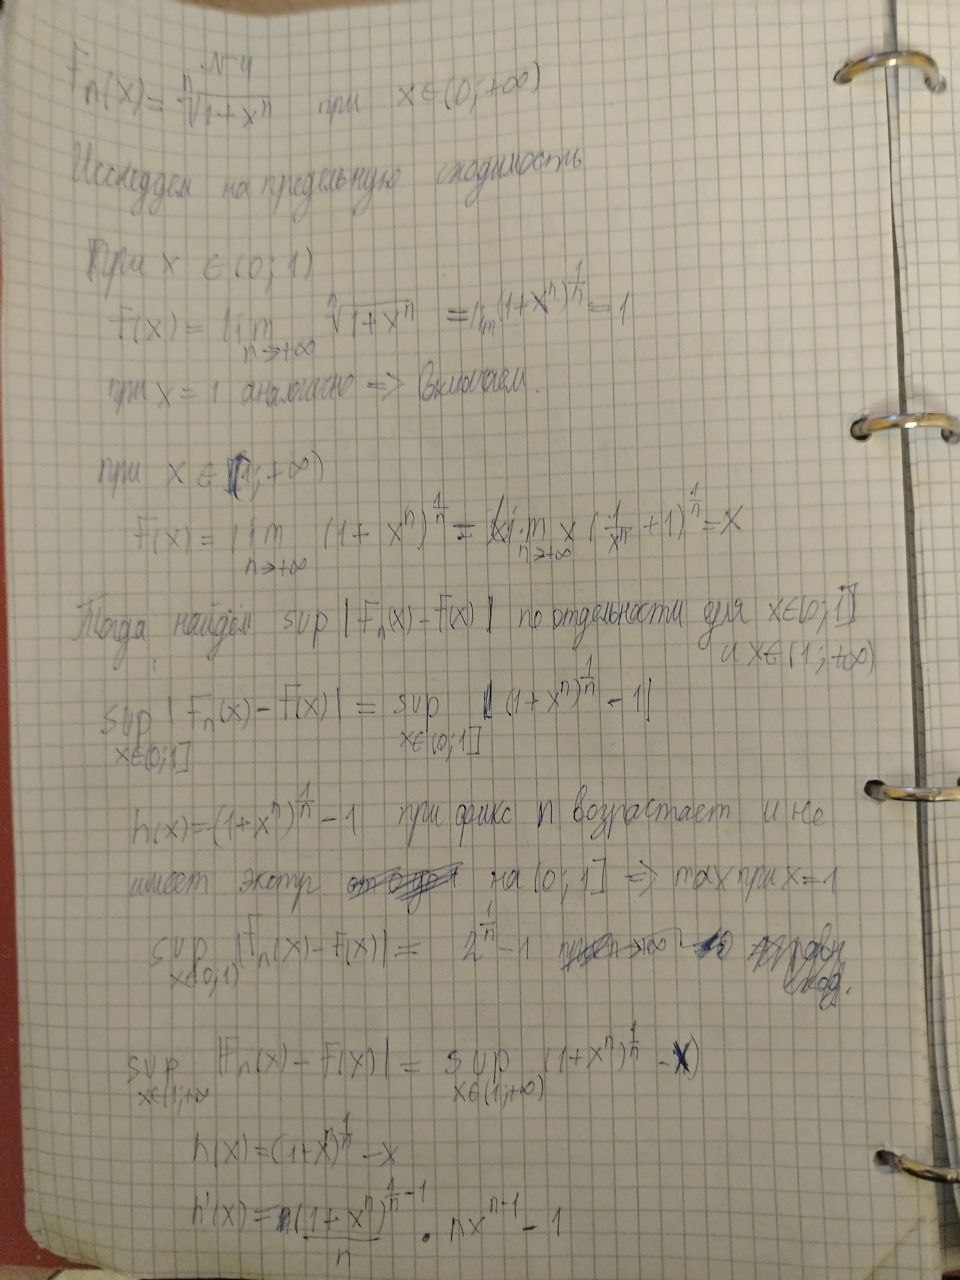 №4
Fn(x) = ⁿ√(1+xⁿ) при x∈(0;+∞)
Исследуем на предельную сходимость
При x ∈ (0; 1)
F(x) = lim n→+∞ ⁿ√(1+xⁿ) = lim (1+xⁿ)^(1/n) = 1
при x = 1 аналогично => Включаем.
при x ∈ (1;+∞)
F(x) = lim n→+∞ (1+xⁿ)^(1/n) = lim n→+∞ x (1/xⁿ + 1)^(1/n) = x
Тогда найдём sup |Fn(x) – F(x)| по отдельности для x∈(0;1]
и x∈(1;+∞)
sup x∈(0;1] |Fn(x) – F(x)| = sup x∈(0;1] |(1+xⁿ)^(1/n) – 1|
h(x) = (1+xⁿ)^(1/n) – 1 при фикс n возрастает и не
имеет экстр на (0;1] => max при x=1
sup x∈(0;1) |Fn(x) – F(x)| = 2^(1/n) – 1
sup x∈(1;+∞ |Fn(x) – F(x)| = sup x∈(1;+∞) (1+xⁿ)^(1/n) – x)
h(x) = (1+xⁿ)^(1/n) – x
h'(x) = (1+xⁿ)^(1/n – 1) / n · nxⁿ⁻¹ – 1